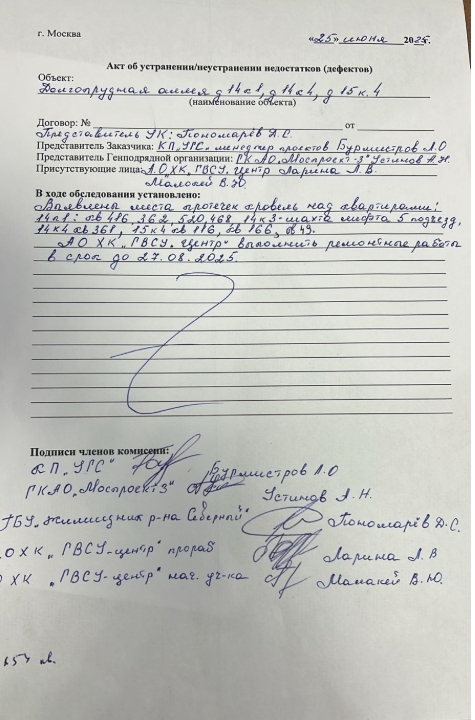 г. Москва
«25» июня 2025г.
Акт об устранении/неустранении недостатков (дефектов)
Объект:
Долгопрудная аллея д 14к1, д 14к4, д 15 к. 4
(наименование объекта)
Договор: № от
Представитель УК: Пономарёв Д.С.
Представитель Заказчика: КП „УГС" менеджер проектов Бурмистров Л.О
Представитель Генподрядной организации: ГКАО „Моспроект-3" Устинов А.Н.
Присутствующие лица: А.О.ХК, ГВСУ, Центр Ларина Л.В.
Мамакей В.Ю.
В ходе обследования установлено:
места протечек кровель над квартирами:
14к1: кв 416, 362, 520, 468 14к3-шахта лифта 5 подъезд,
14к4 кв 361, 15к4 кв 116, кв 166, 49.
АО ХК „ГВСУ. Центр" выполнить ремонтные работы
в срок до 27.08.2025.
Подписи членов комиссии:
КП „УГС" Бурмистров Л.О
ГКАО „Моспроект-3" Устинов А.Н.
ГБУ „Жилищник р-на Северный" Пономарёв Д.С.
О ХК „ГВСУ-центр" прораб Ларина Л.В
О ХК „ГВСУ-центр" нач. уч-ка Мамакей В.Ю.
кв.